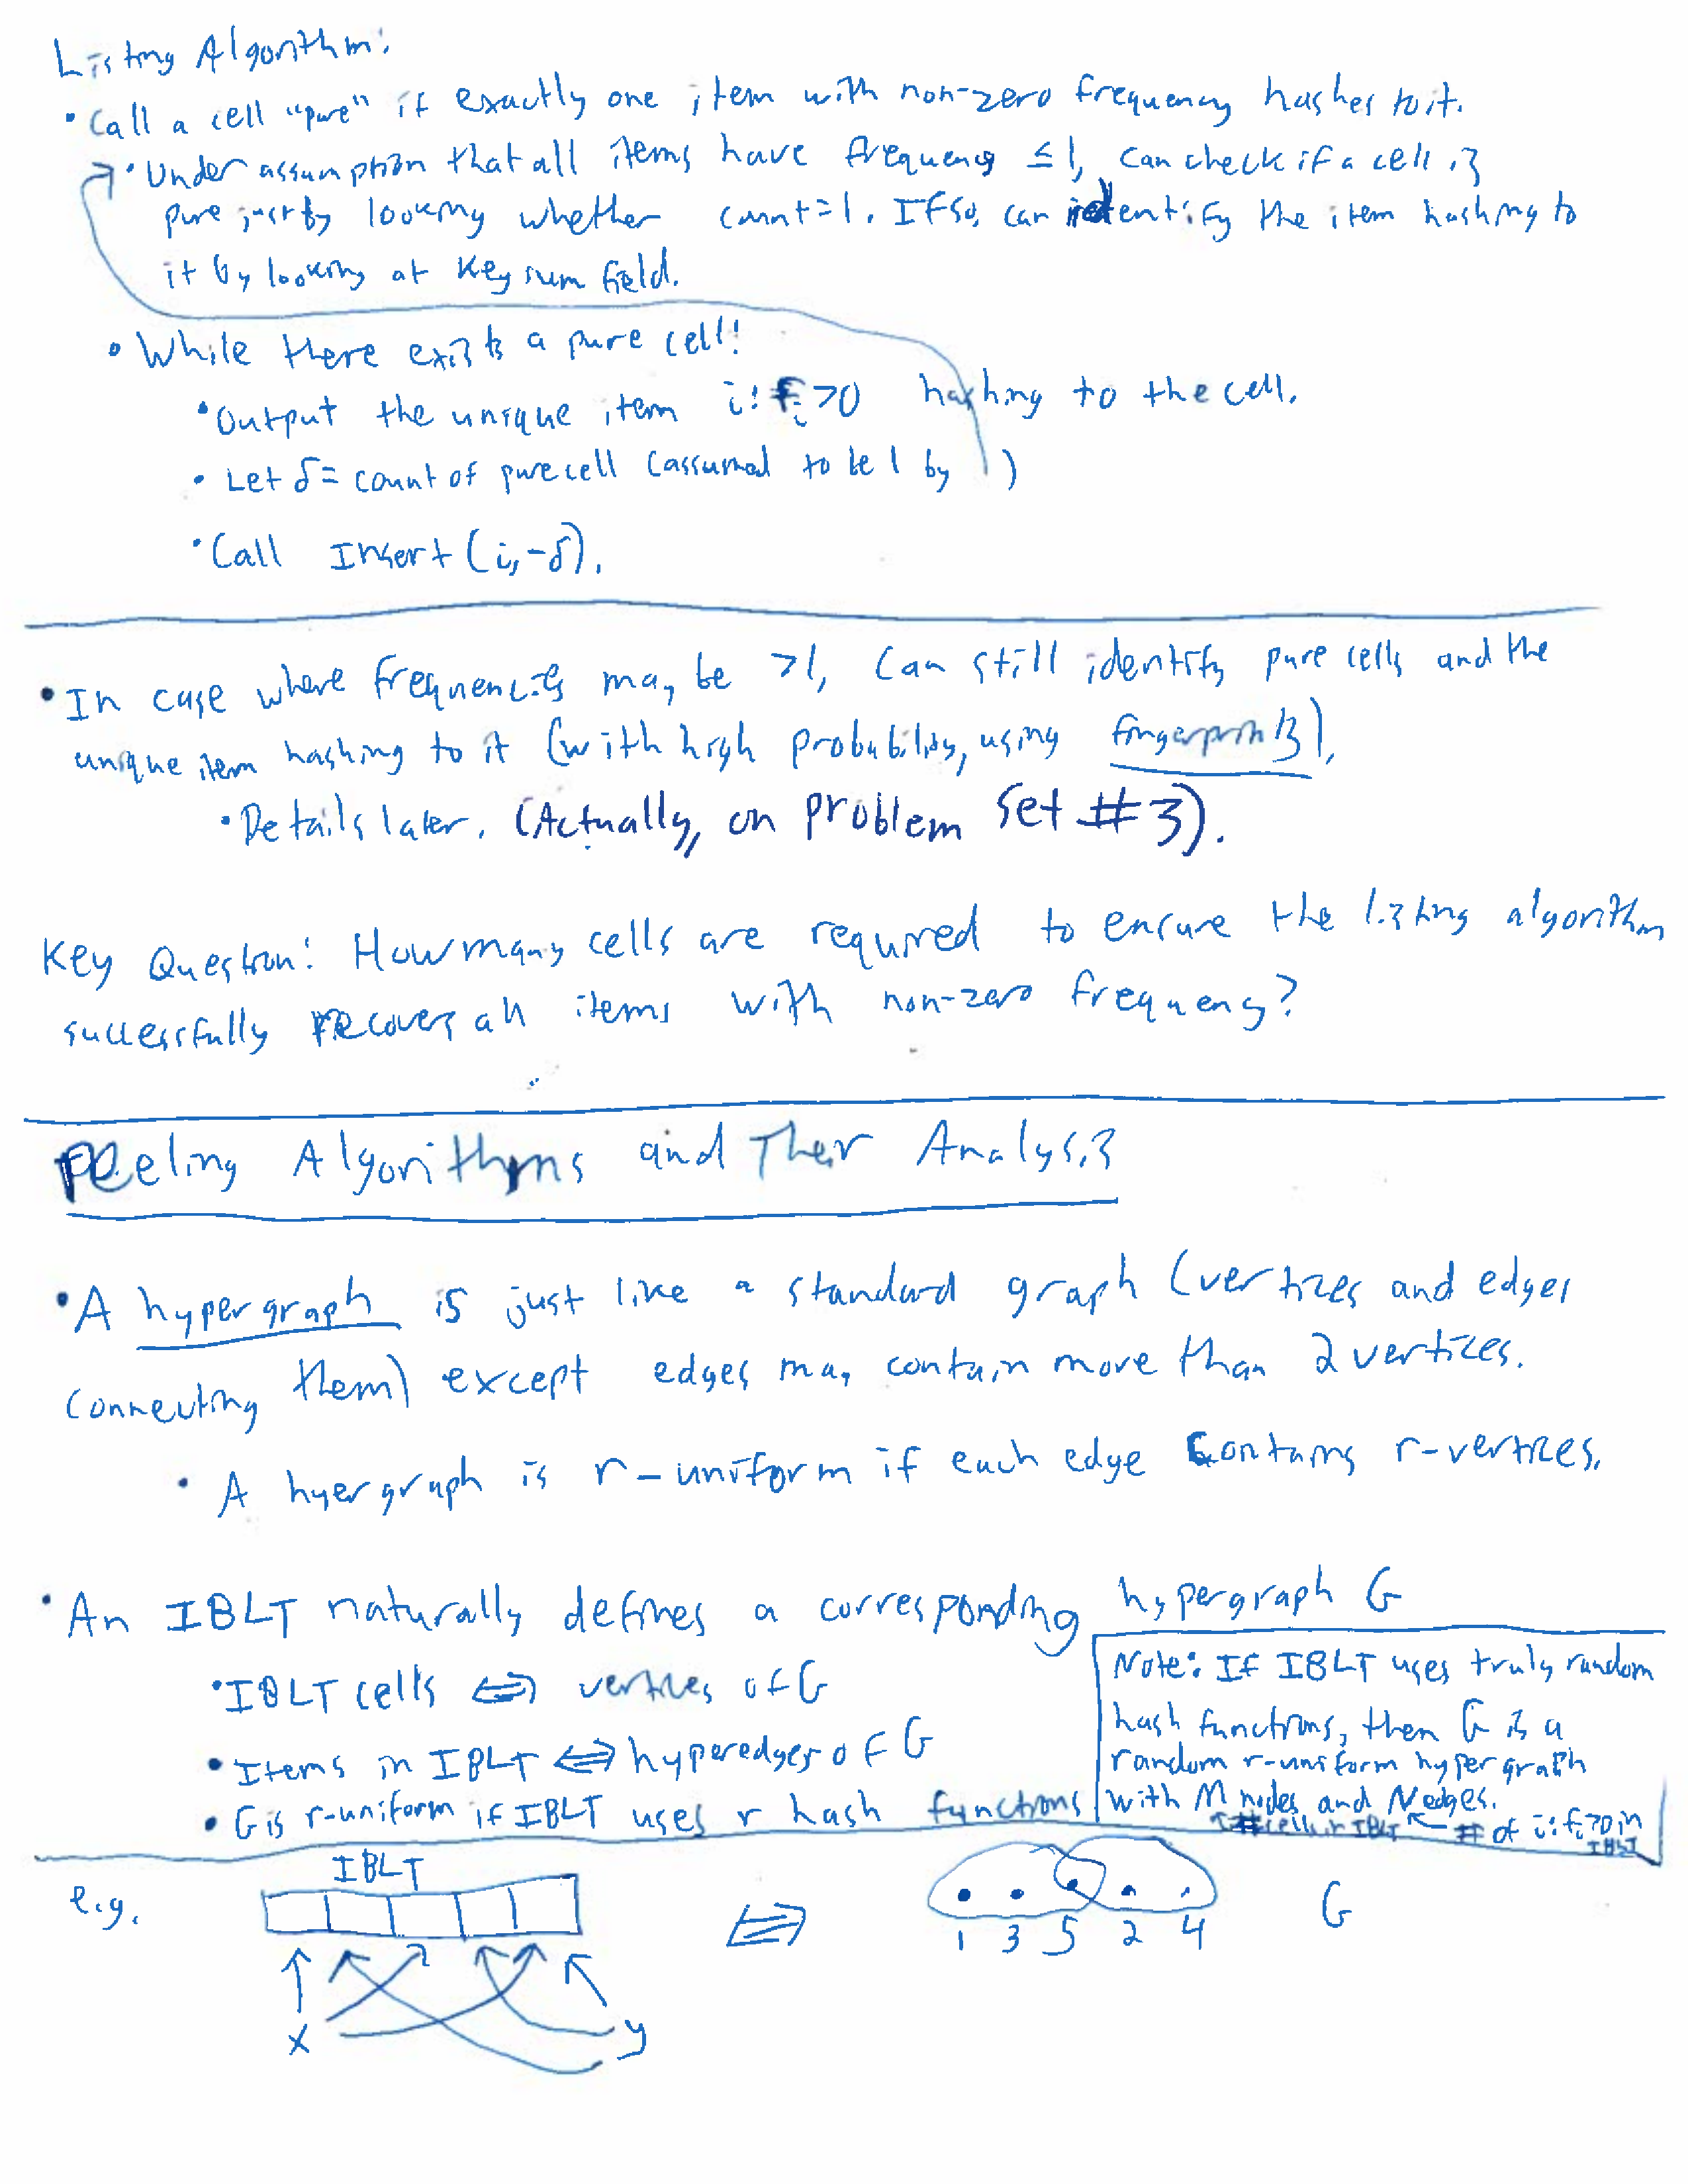 Listing Algorithm:
• Call a cell "pure" if exactly one item with non-zero frequency hashes to it.
• Under assumption that all items have frequency ≤ 1, can check if a cell is
pure just by looking whether count=1. If so, can identify the item hashing to
it by looking at Keysum field.
• While there exists a pure cell:
• Output the unique item i: fᵢ>0 hashing to the cell.
• Let δ = count of pure cell (assumed to be 1 by )
• Call Insert(i,-δ).
• In case where frequencies may be >1, can still identify pure cells and the
unique item hashing to it (with high probability, using fingerprints).
• Details later. (Actually, on problem set #3).
Key Question: How many cells are required to ensure the listing algorithm
successfully recovers all items with non-zero frequency?
Peeling Algorithms and Their Analysis
• A hypergraph is just like a standard graph (vertices and edges
connecting them) except edges may contain more than 2 vertices.
• A hyergraph is r-uniform if each edge contains r-vertices.
• An IBLT naturally defines a corresponding hypergraph G
• IBLT cells ⇔ vertices of G
• Items in IBLT ⇔ hyperedges of G
• G is r-uniform if IBLT uses r hash functions
Note: If IBLT uses truly random
hash functions, then G is a
random r-uniform hypergraph
with M nodes and N edges.
↑ # cells in IBLT ↖ # of i: fᵢ>0 in
IBLT
e.g.
IBLT
⇔
1 3 5 2 4
G
x
y